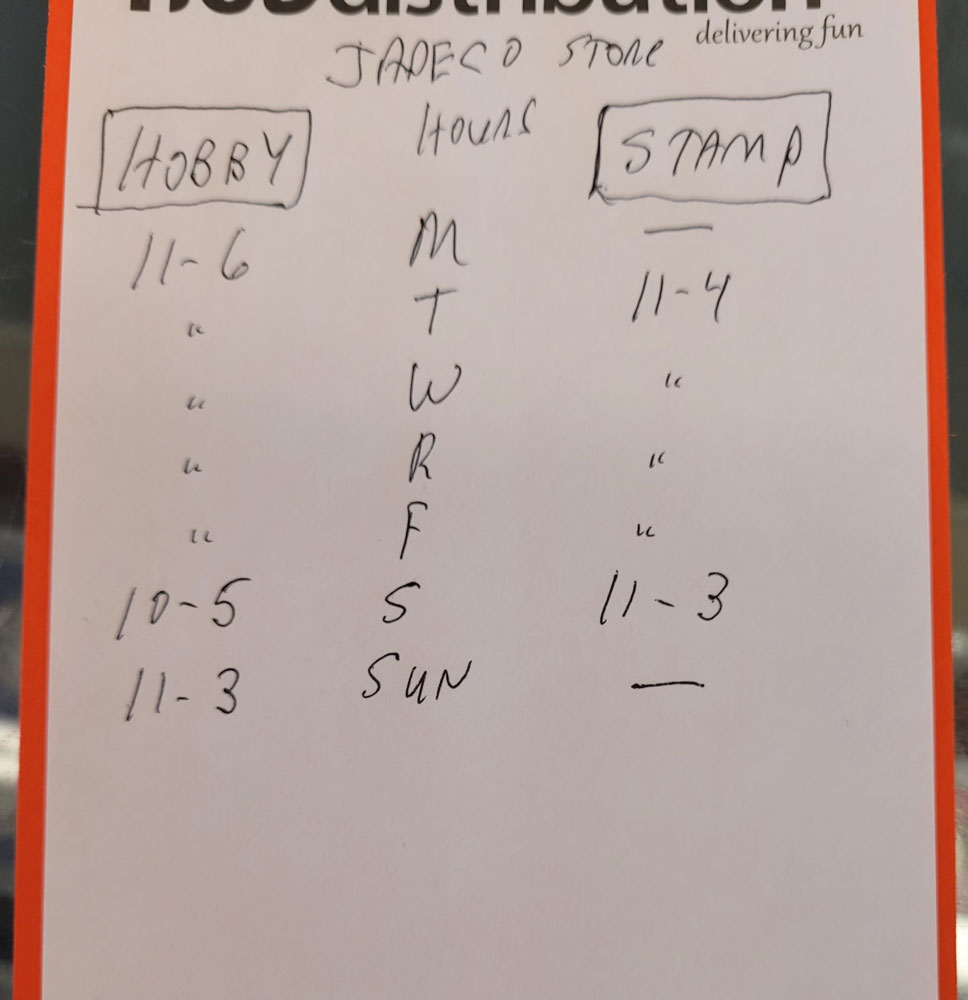 distribution
delivering fun
JADECO STORE
HOURS
HOBBY STAMP
11-6 M —
" T 11-4
" W "
" R "
" F "
10-5 S 11-3
11-3 SUN —